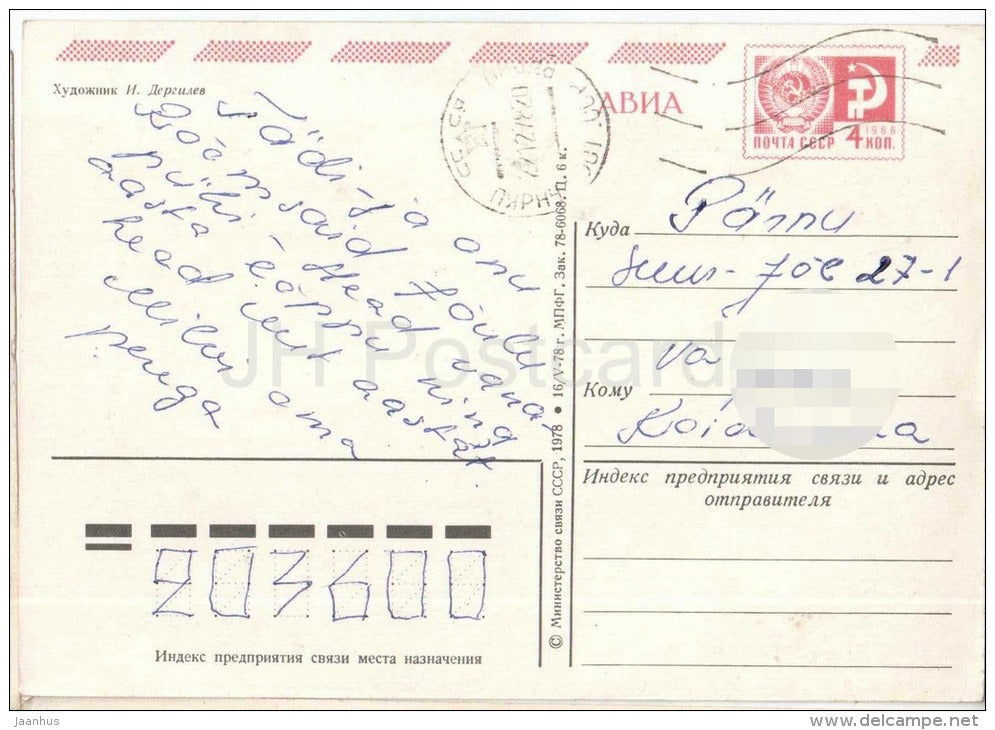 Художник И. Дергилев
АВИА
ПОЧТА СССР
1966
4 КОП.
СССР
Tädi ja onu
Rõõmsaid Jõulu
pühi Head vana-
aasta lõppu ning
head uut aastat
oma
perega
Куда Pärnu
Suur-Jõe 27-1
Кому
Индекс предприятия связи и адрес
отправителя
© Министерство связи СССР, 1978 • 16/V-78 г. МПФГ. Зак. 78-6068. Ц. 6 к.
203600
Индекс предприятия связи места назначения
JH Postcards
Jaanhus
www.delcampe.net